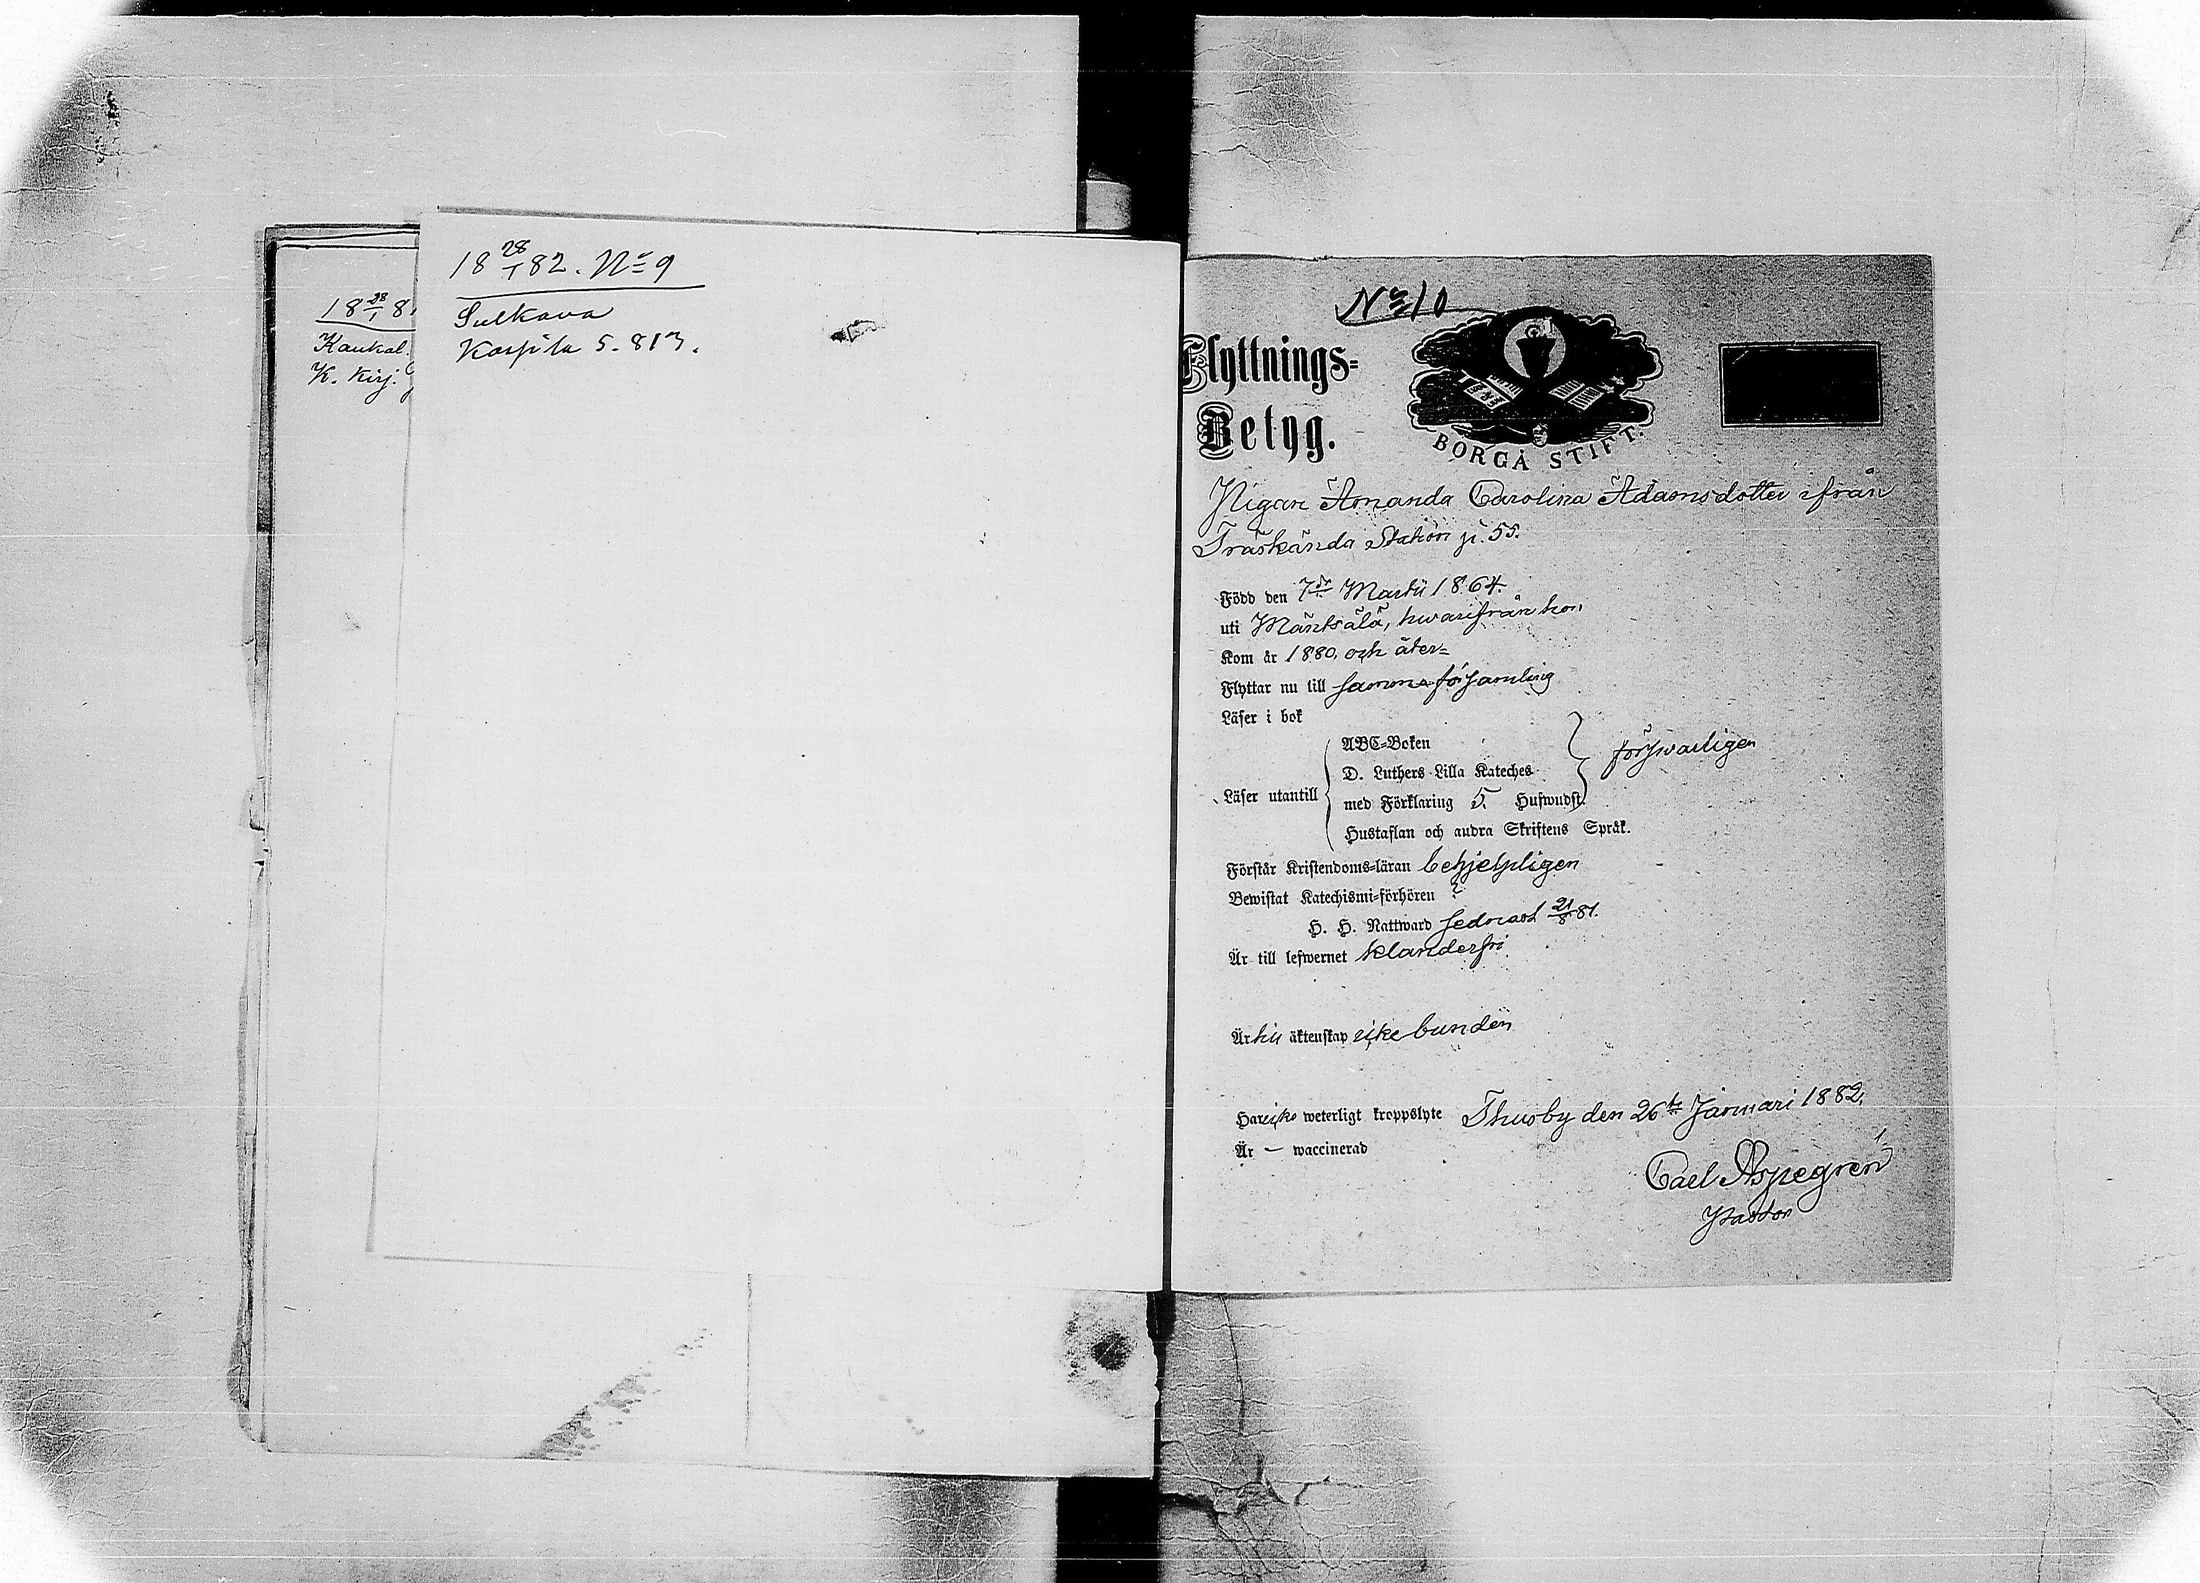 18 28/1 8
Kaukal.
K. Kirj.
18 28/1 82. No 9
Sulkava
Kaspila S. 813.
No 10
Flyttnings-
Betyg.
BORGÅ STIFT.
Pigan Amanda Carolina Adamsdotter ifrån
Träskända Station p. 55.
Född den 7de Martii 1864.
uti Mäntsälä, hwarifrån hon
Kom år 1880, och åter-
Flyttar nu till samma församling
Läser i bok
ABC-Boken
D. Luthers Lilla Kateches
försvarligen
Läser utantill
med Förklaring 5. Hufwudst.
Hustaflan och andra Skriftens Språk.
Förstår Kristendoms-läran behjelpligen
Bewistat Katechismi-förhören ?
H. H. Nattward sednast 21/8 81.
Är till lefwernet klanderfri
Är hii äktenskap icke bunden
Har icke weterligt kroppslyte Thusby den 26te Januari 1882.
Är — waccinerad
Carl Aspegren
Pastor